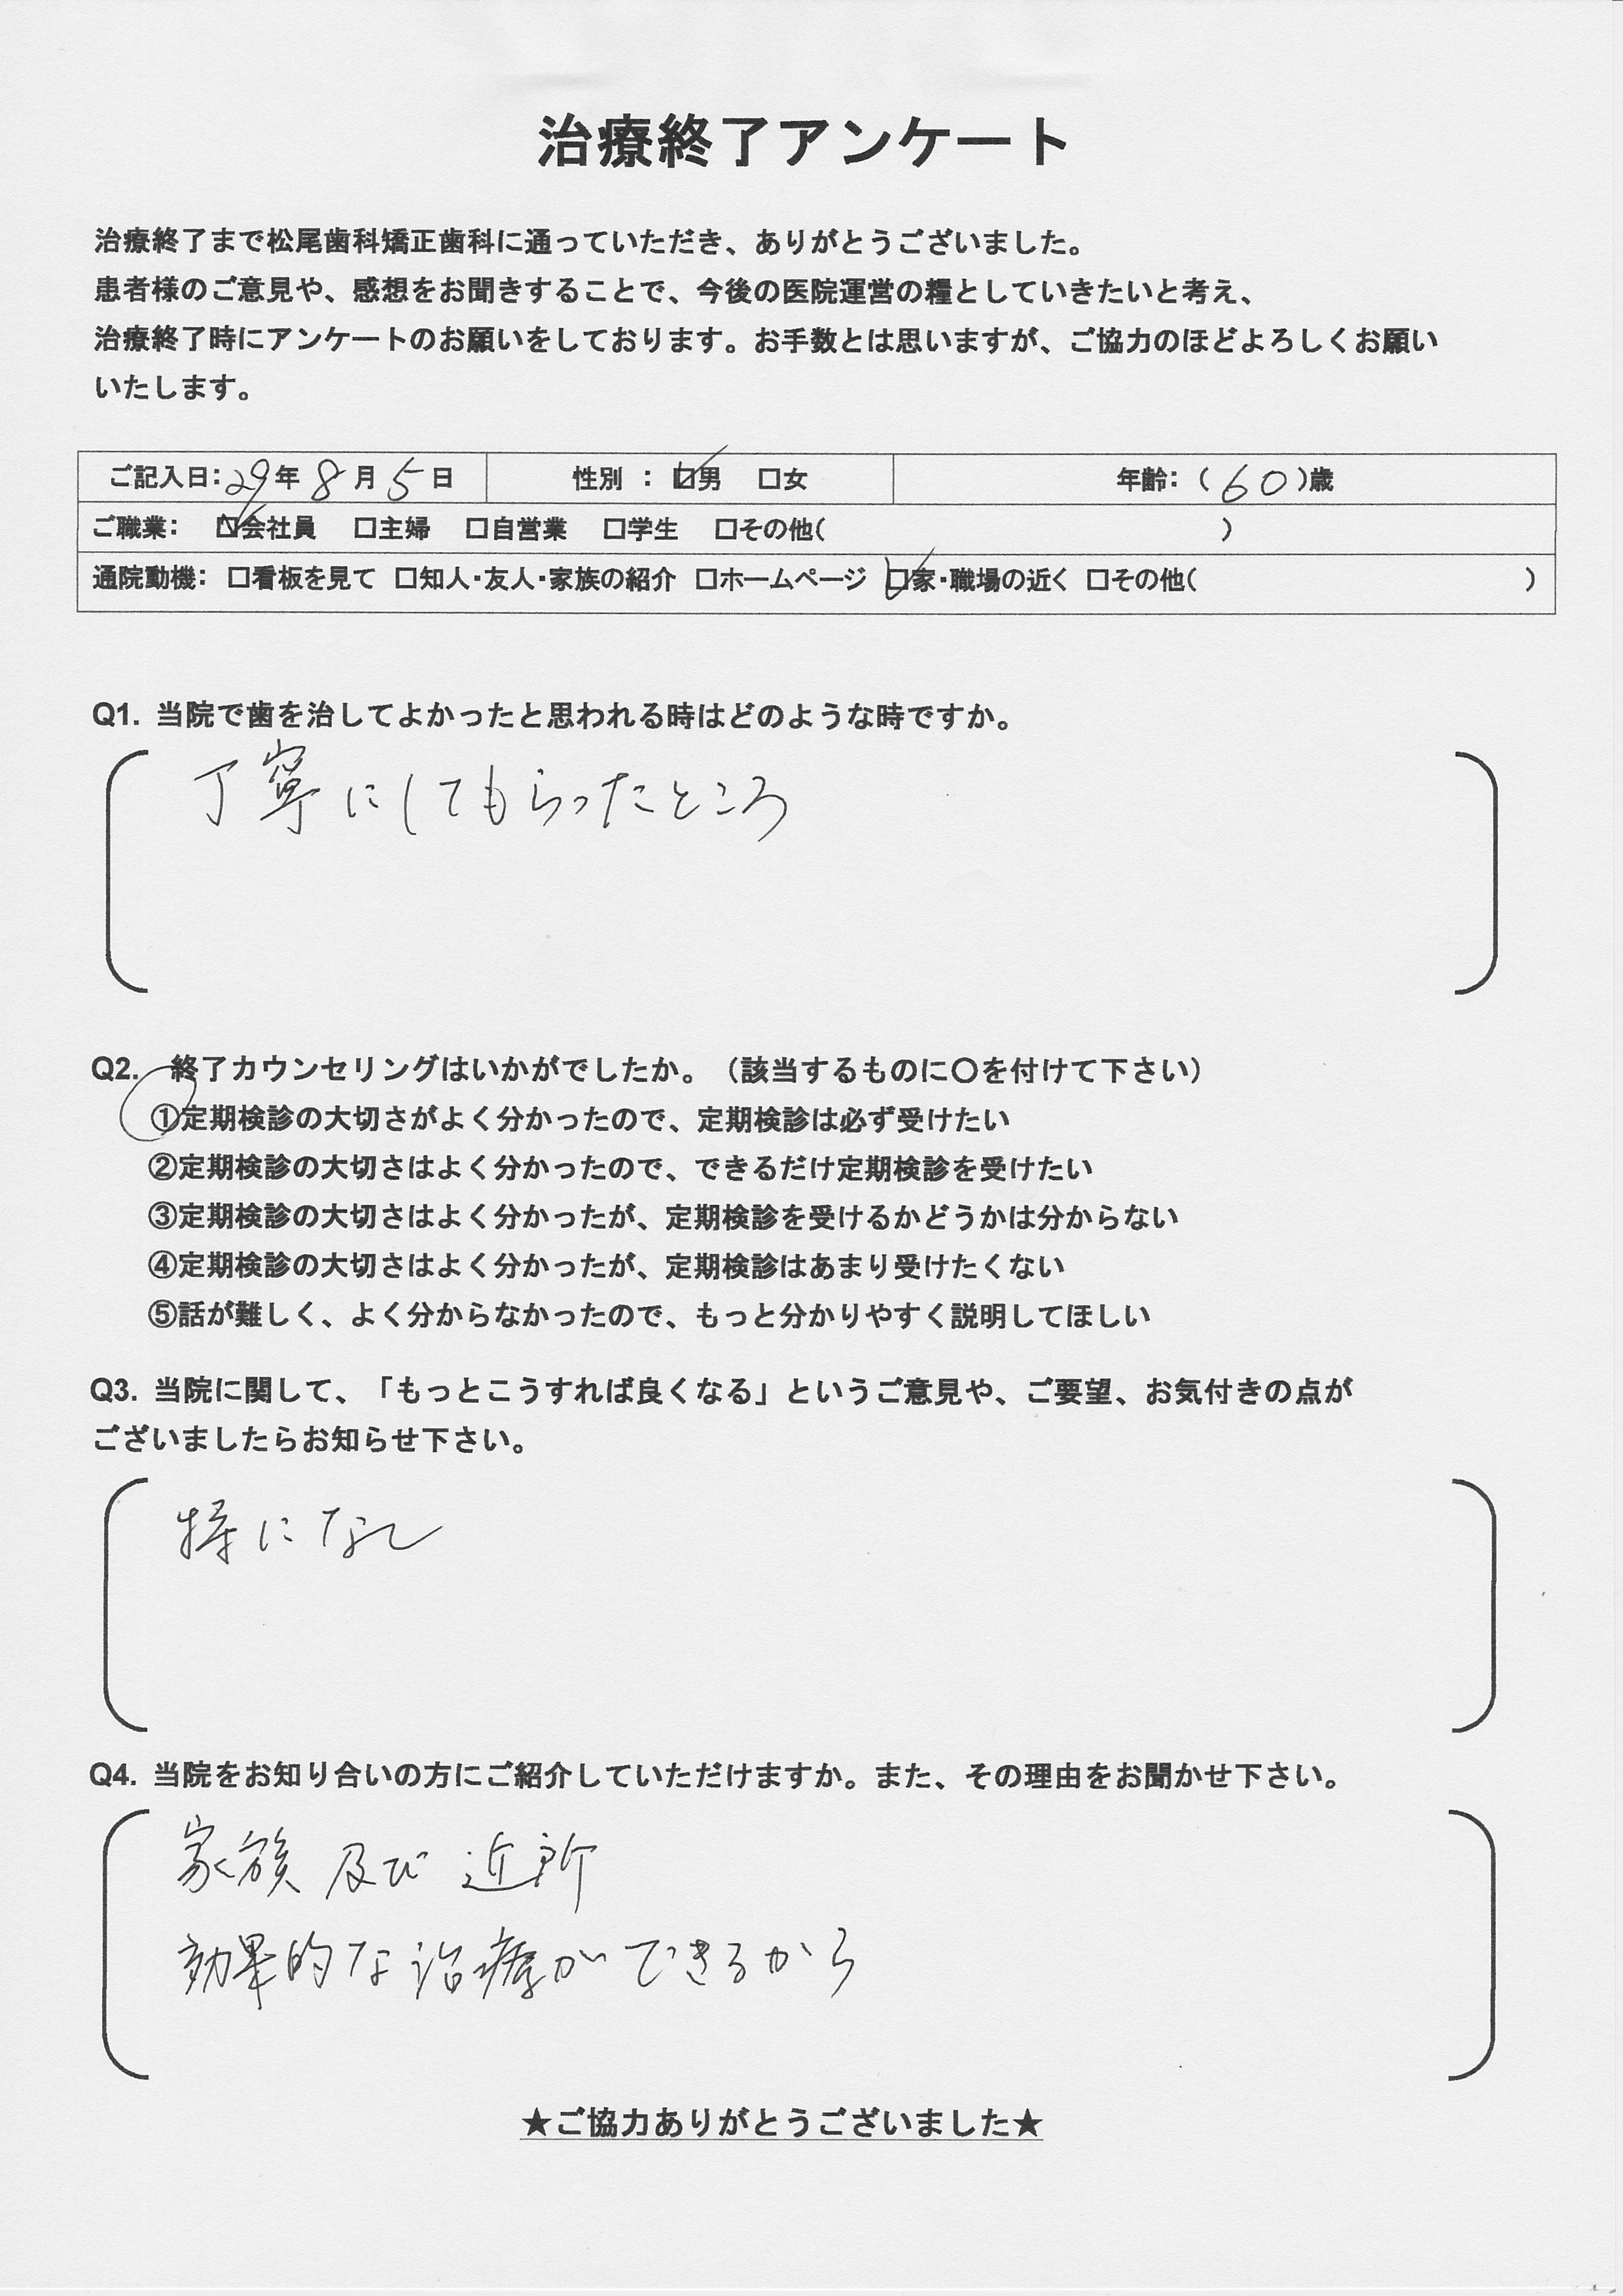 治療終了アンケート
治療終了まで松尾歯科矯正歯科に通っていただき、ありがとうございました。
患者様のご意見や、感想をお聞きすることで、今後の医院運営の糧としていきたいと考え、
治療終了時にアンケートのお願いをしております。お手数とは思いますが、ご協力のほどよろしくお願い
いたします。
ご記入日：29年 8月 5日 性別 ： ☑男 □女 年齢：（ 60 ）歳
ご職業： ☑会社員 □主婦 □自営業 □学生 □その他（ ）
通院動機： □看板を見て □知人・友人・家族の紹介 □ホームページ ☑家・職場の近く □その他（ ）
Q1. 当院で歯を治してよかったと思われる時はどのような時ですか。
丁寧にしてもらったところ
Q2. 終了カウンセリングはいかがでしたか。（該当するものに〇を付けて下さい）
①定期検診の大切さがよく分かったので、定期検診は必ず受けたい
②定期検診の大切さはよく分かったので、できるだけ定期検診を受けたい
③定期検診の大切さはよく分かったが、定期検診を受けるかどうかは分からない
④定期検診の大切さはよく分かったが、定期検診はあまり受けたくない
⑤話が難しく、よく分からなかったので、もっと分かりやすく説明してほしい
Q3. 当院に関して、「もっとこうすれば良くなる」というご意見や、ご要望、お気付きの点が
ございましたらお知らせ下さい。
特になし
Q4. 当院をお知り合いの方にご紹介していただけますか。また、その理由をお聞かせ下さい。
家族 及び 近所
効果的な治療ができるから
★ご協力ありがとうございました★